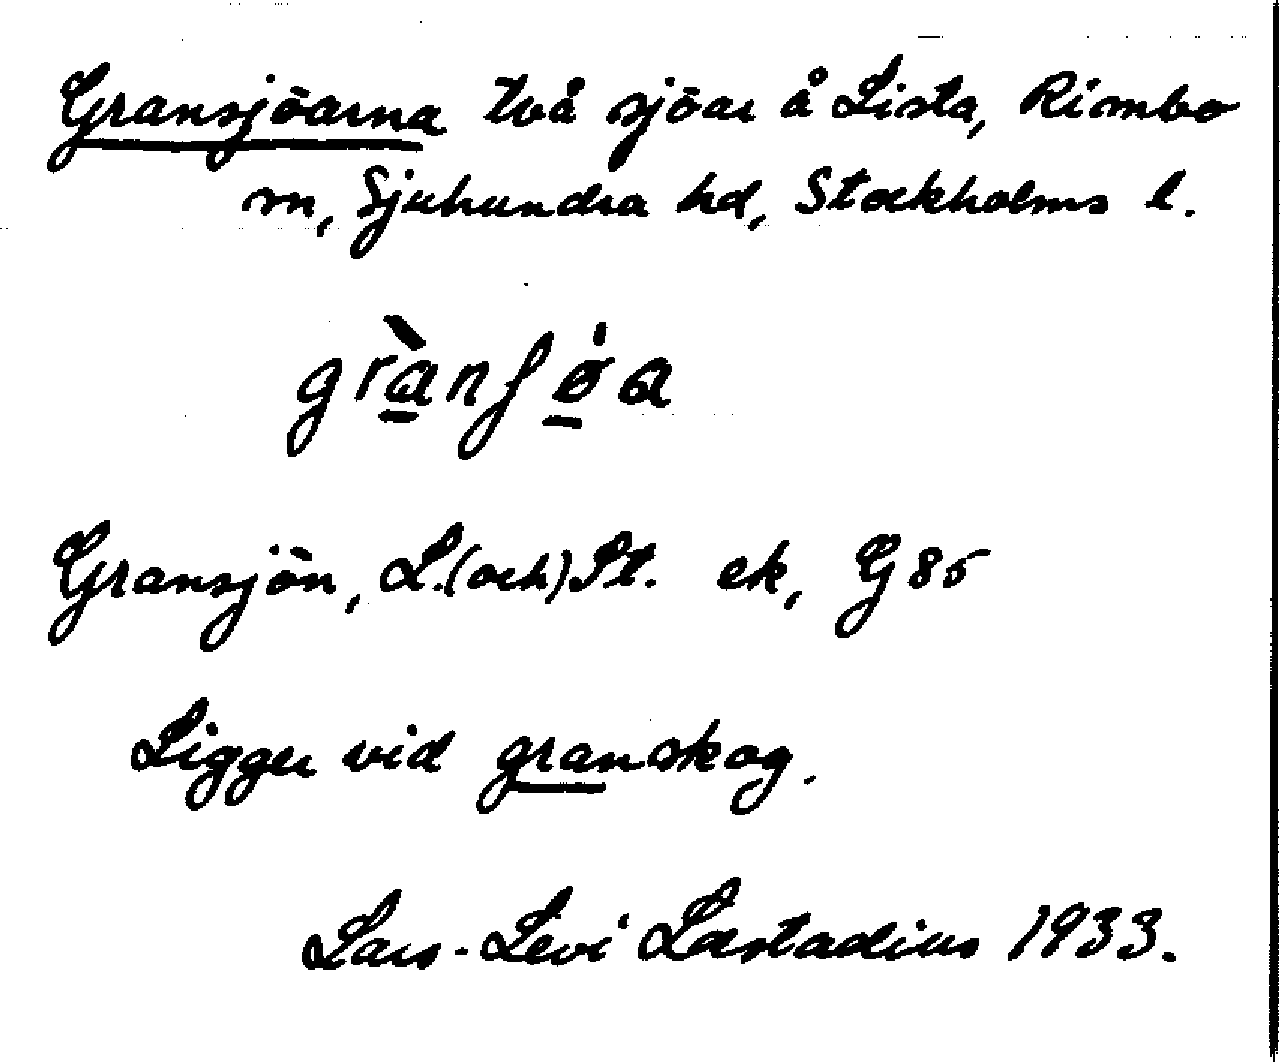 Gransjöarna två sjöar å Lista, Rimbo
sn, Sjuhundra hd, Stockholms l.
grànʃøa
Gransjön, L.(och)St. ek, G 85
Ligger vid granskog.
Lars-Levi Læstadius 1933.